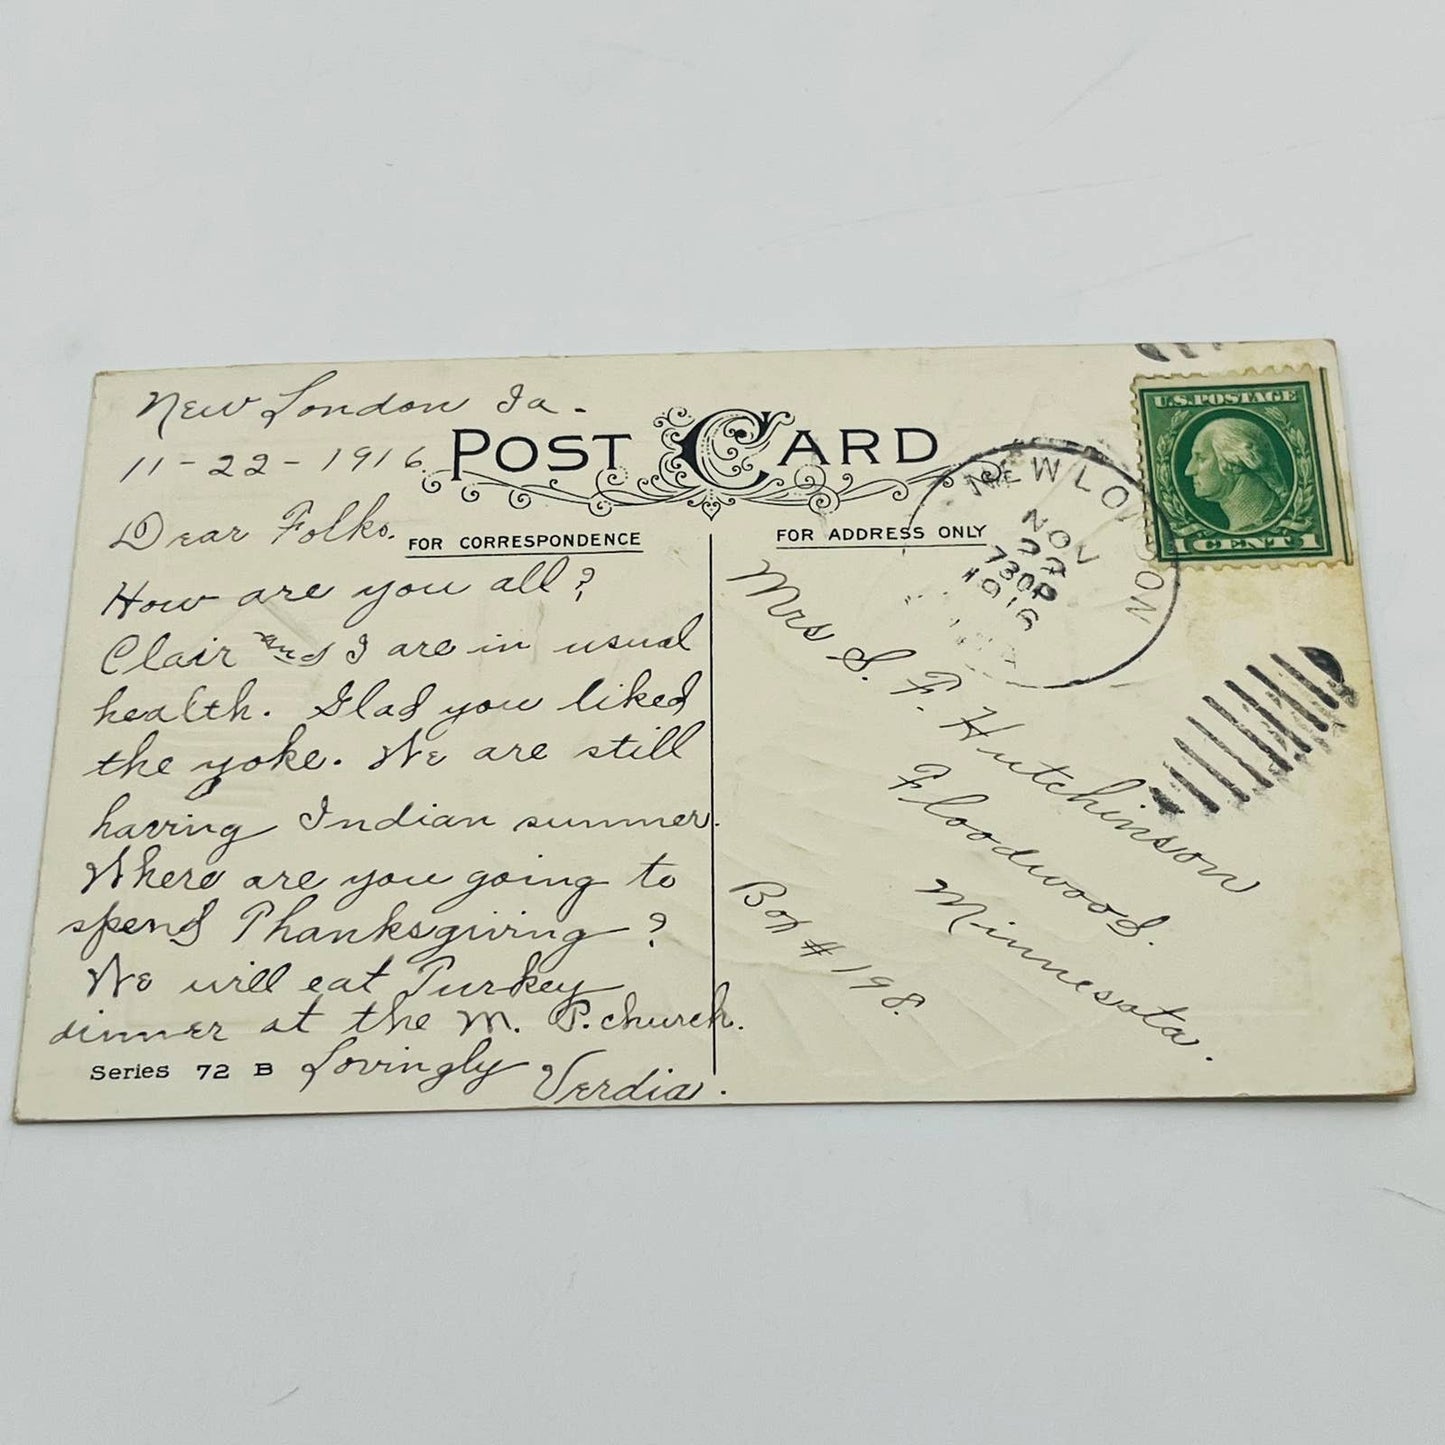 New London Ia.
11-22-1916.
POST CARD
Dear Folks.
FOR CORRESPONDENCE
FOR ADDRESS ONLY
How are you all?
Clair and I are in usual
health. Glad you liked
the yoke. We are still
having Indian summer.
Where are you going to
spend Thanksgiving?
We will eat Turkey
dinner at the M. P. church.
Lovingly Verdia.
Series 72 B
U.S. POSTAGE
1 CENT 1
NEW LONDON
NOV
730P
1916
Mrs S. F. Hutchinson
Floodwood.
Minnesota.
Box # 198.